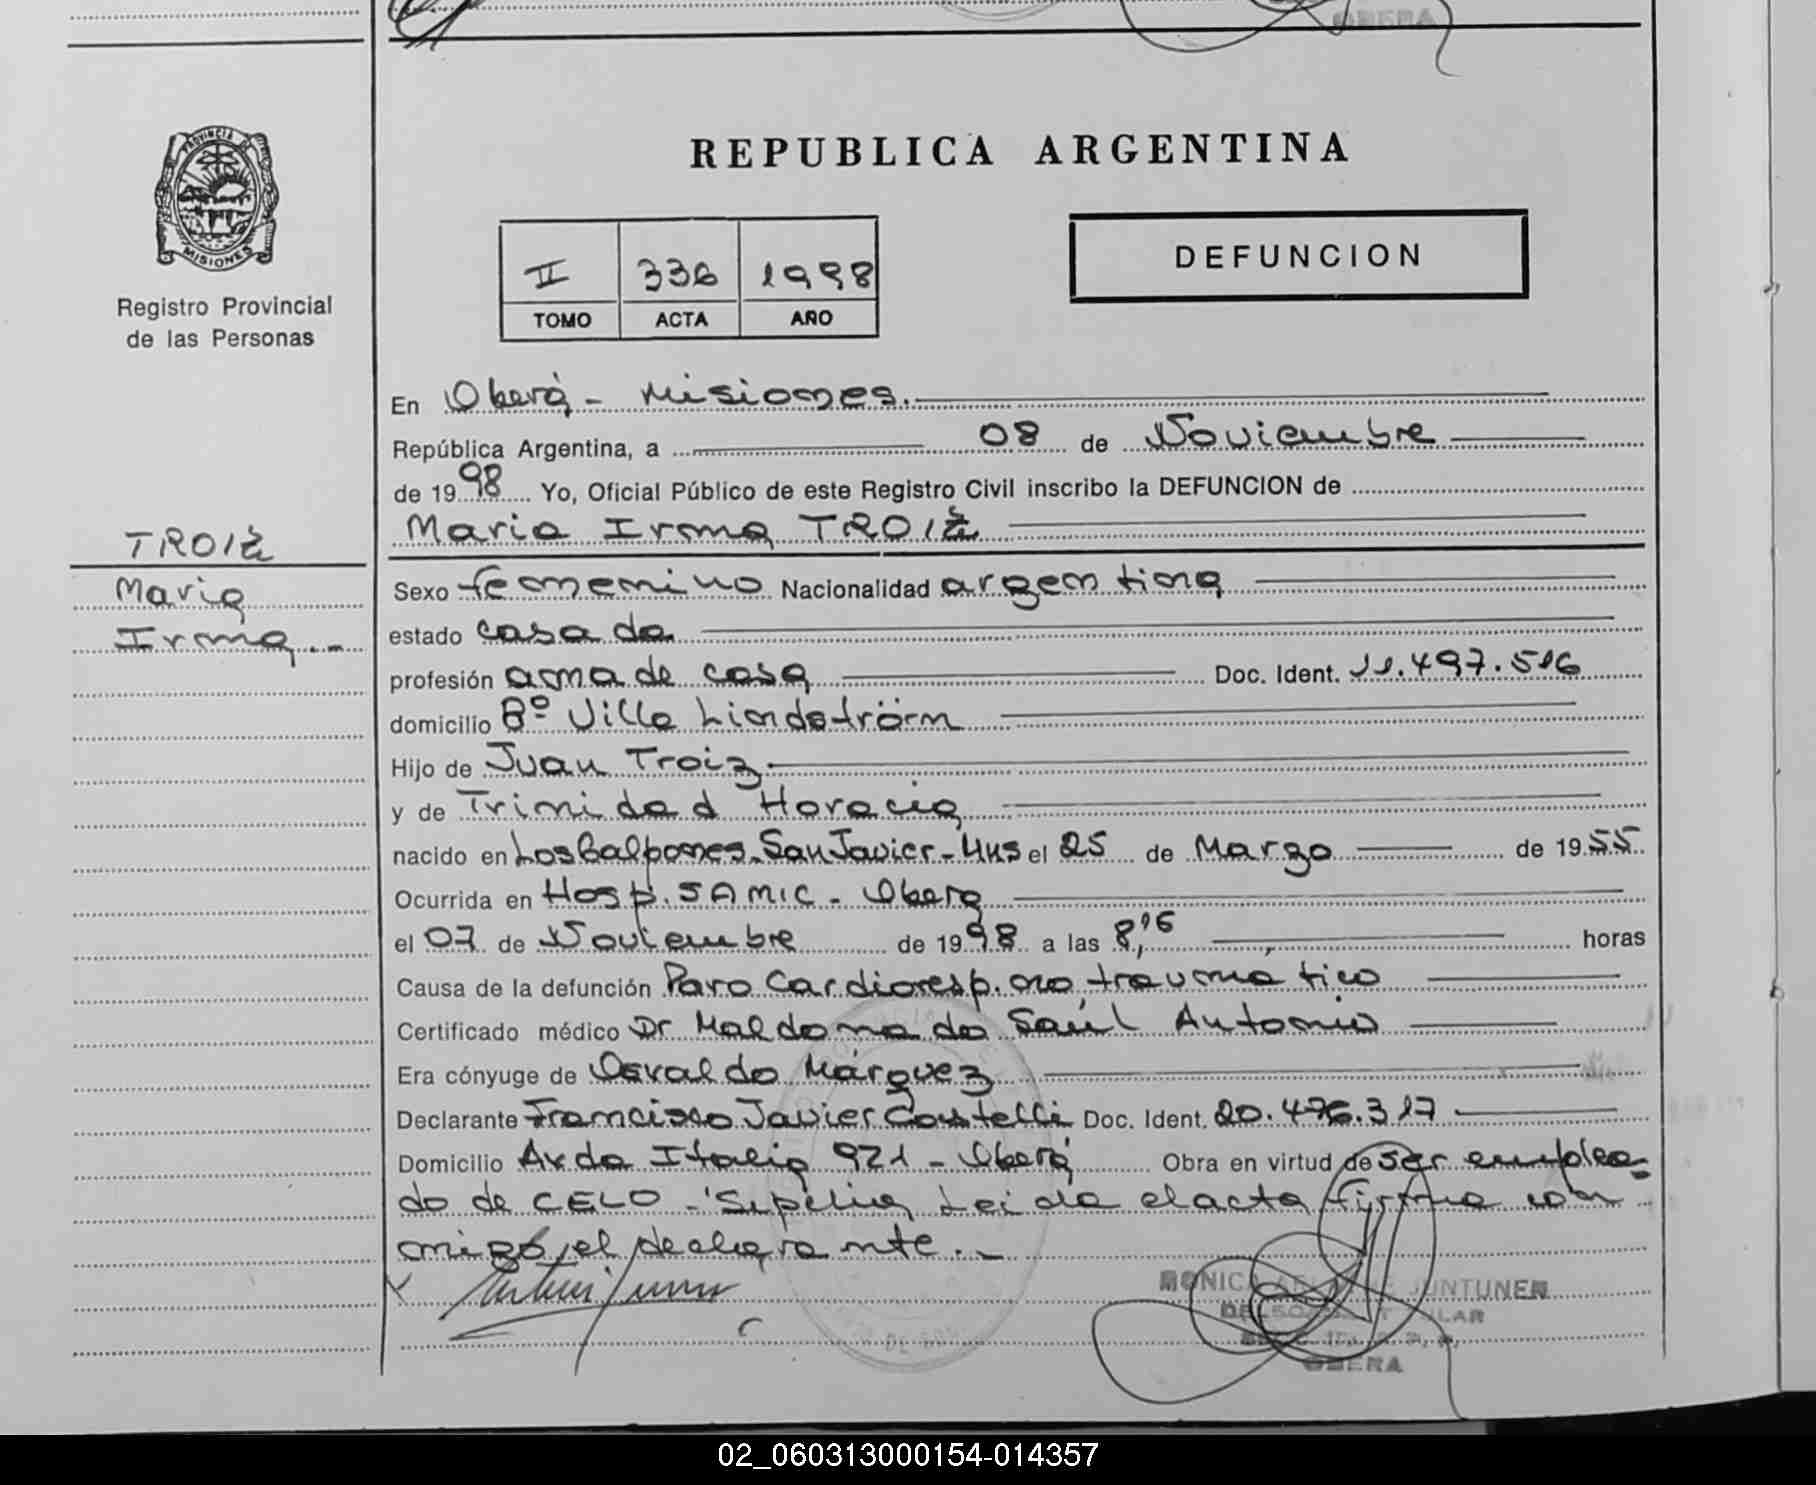 OBERA
PROVINCIA DE
MISIONES
Registro Provincial
de las Personas
REPUBLICA ARGENTINA
II 336 1998
TOMO ACTA AÑO
DEFUNCION
En Oberá - Misiones.
República Argentina, a 08 de Noviembre
de 1998 Yo, Oficial Público de este Registro Civil inscribo la DEFUNCION de
Maria Irma TROIZ
TROIZ
Maria
Irma.-
Sexo femenino Nacionalidad argentina
estado casada
profesión ama de casa Doc. Ident. 11.497.516
domicilio Bº Villa Lindström
Hijo de Juan Troiz
y de Trinidad Horacia
nacido en Los Galpones-San Javier-Mns el 25 de Marzo de 1955
Ocurrida en Hosp. SAMIC - Obera
el 07 de Noviembre de 1998 a las 8,15 horas
Causa de la defunción Paro Cardioresp. no traumatico
Certificado médico Dr Maldonado Saúl Antonio
Era cónyuge de Osvaldo Márquez
Declarante Francisco Javier Castelli Doc. Ident. 20.476.317
Domicilio Avda Italia 921 - Oberá Obra en virtud de ser emplea-
do de CELO - Sepelios Leida el acta firma con
migo el declarante.-
MONICA JUNTUNEN
OBERA
02_060313000154-014357